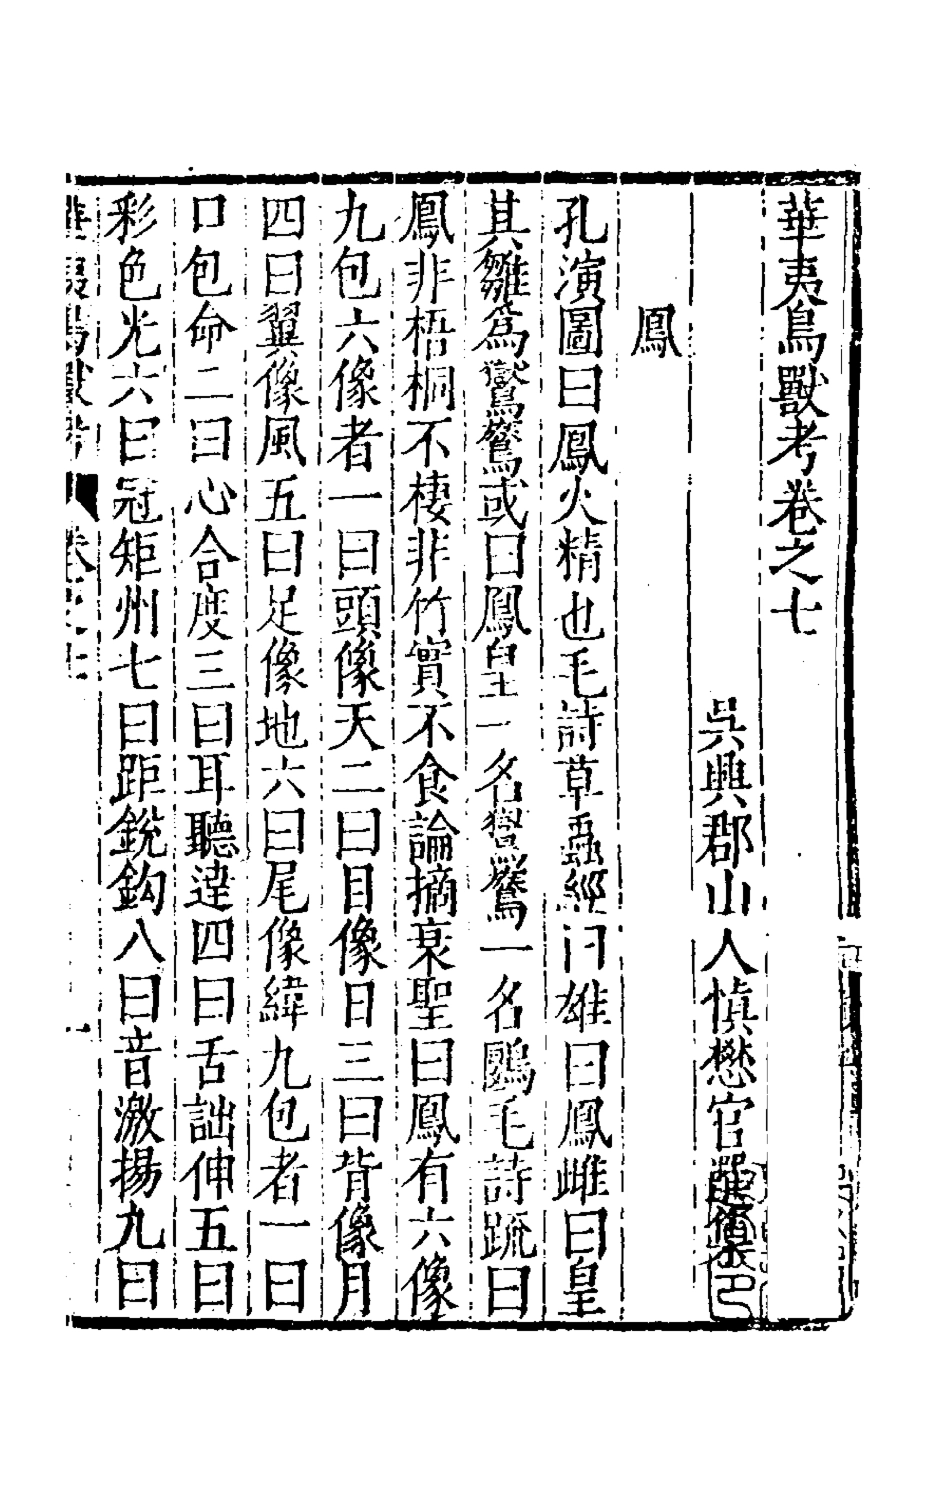 華夷鳥獸考卷之七
吳興郡山人愼懋官選集
鳳
孔演圖曰鳳火精也毛詩草蟲經曰雄曰鳳雌曰皇
其雛為鸑鷟或曰鳳皇一名鸑鷟一名鶠毛詩疏曰
鳳非梧桐不棲非竹實不食論摘衰聖曰鳳有六像
九包六像者一曰頭像天二曰目像日三曰背像月
四曰翼像風五曰足像地六曰尾像緯九包者一曰
口包命二曰心合度三曰耳聽達四曰舌詘伸五曰
彩色光六曰冠矩州七曰距銳鈎八曰音激揚九曰
華夷鳥獸考 卷之七 一